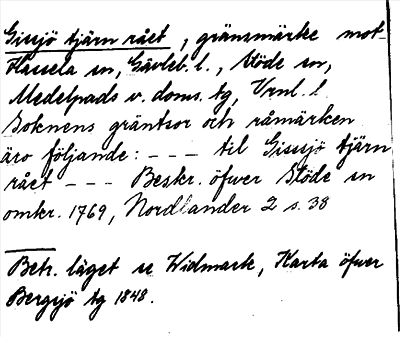 Gissjö tjärn rået, gränsmärke mot
Hassela sn, Gävleb. l., Stöde sn,
Medelpads v. doms. tg, Vrnl. l.
Soknens gräntsor och råmärken
äro följande: --- til Gissjö tjärn
rået --- Beskr. öfwer Stöde sn
omkr. 1769, Nordlander 2 s. 38
Betr. läget se Widmark, Karta öfver
Bergsjö tg 1848.